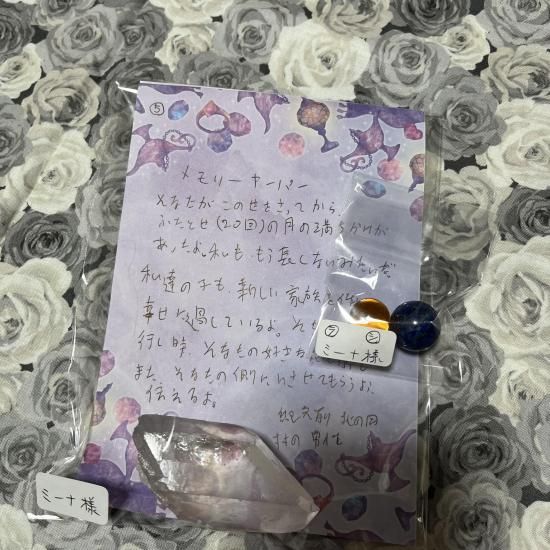 ⑤
メモリーキーパー
そなたがこのせをさってから、
ふたとせ(20回)の月の満ちかけが
あったよ。私も、もう長くないみたいだ。
私達の子も、新しい家族と
幸せに過しているよ。
行し時、そなたの好きな
また、そなたの側にいさせてもらうよ。
伝えるよ。
紀元前 北の国
村の男性
ミーナ様
ミーナ様